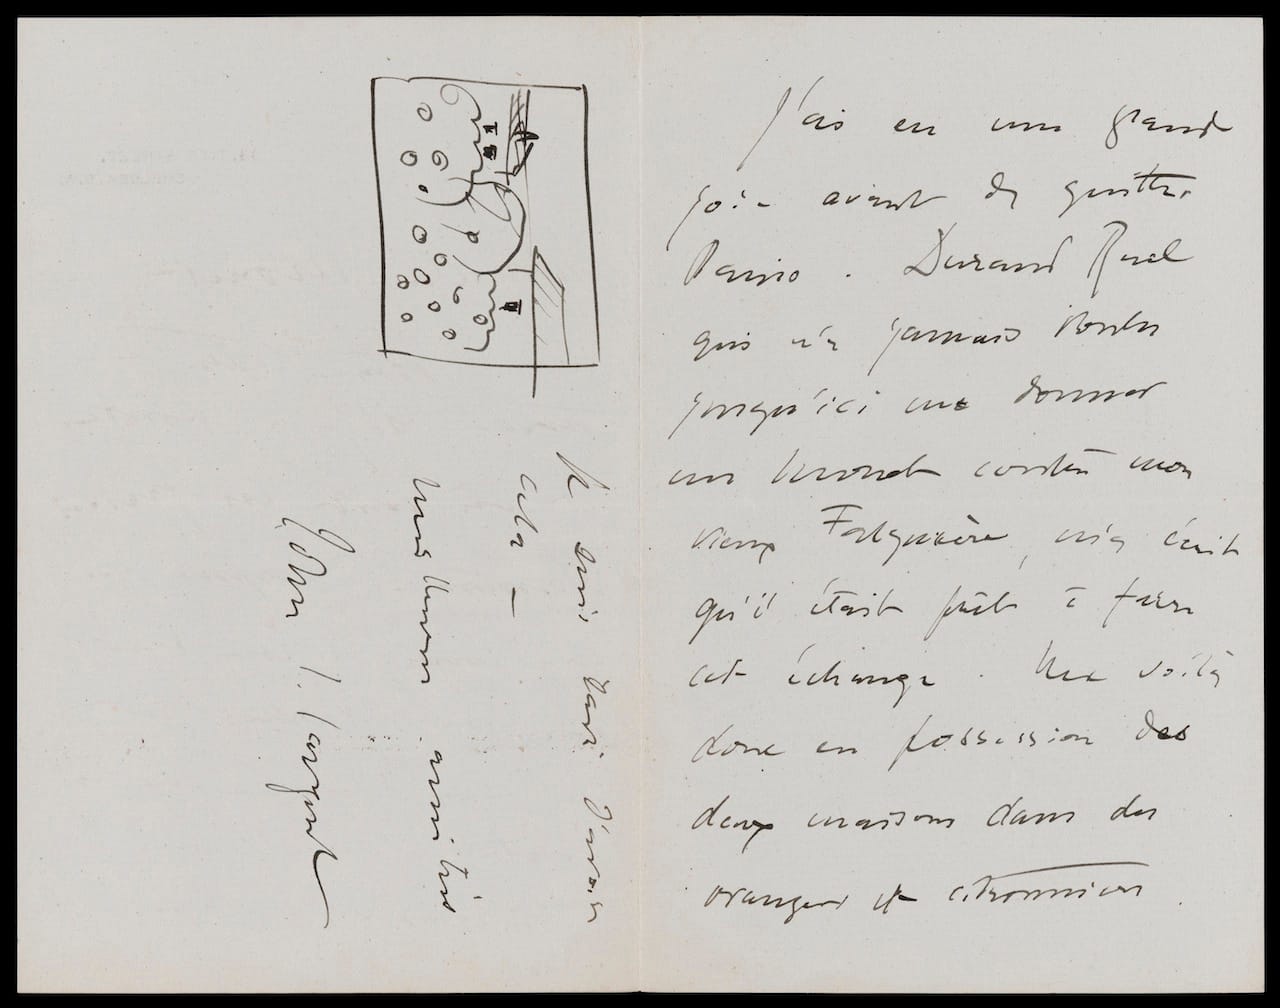 J'ais eu une grand
joie avant de quitter
Paris. Durand Ruel
qui n'a jamais voulu
jusqu'ici me donner
un Monet contre mon
vieux Falguière, m'a écrit
qu'il était prêt à faire
cet échange. Me voilà
donc en possession des
deux maisons dans des
orangers et citronniers.
Je suis ravi d'avoir
cela —
mes amitiés
John S. Sargent